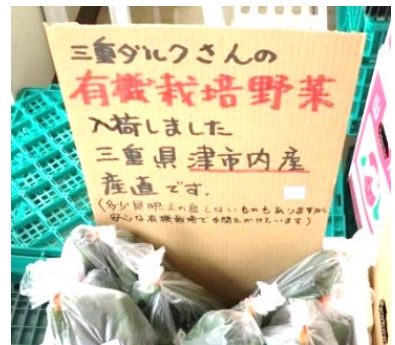 三重ダルクさんの
有機栽培野菜
入荷しました
三重県津市内産
産直です.
(多少見映えの良くないものもありますが
安心な有機栽培で手間をかけています)